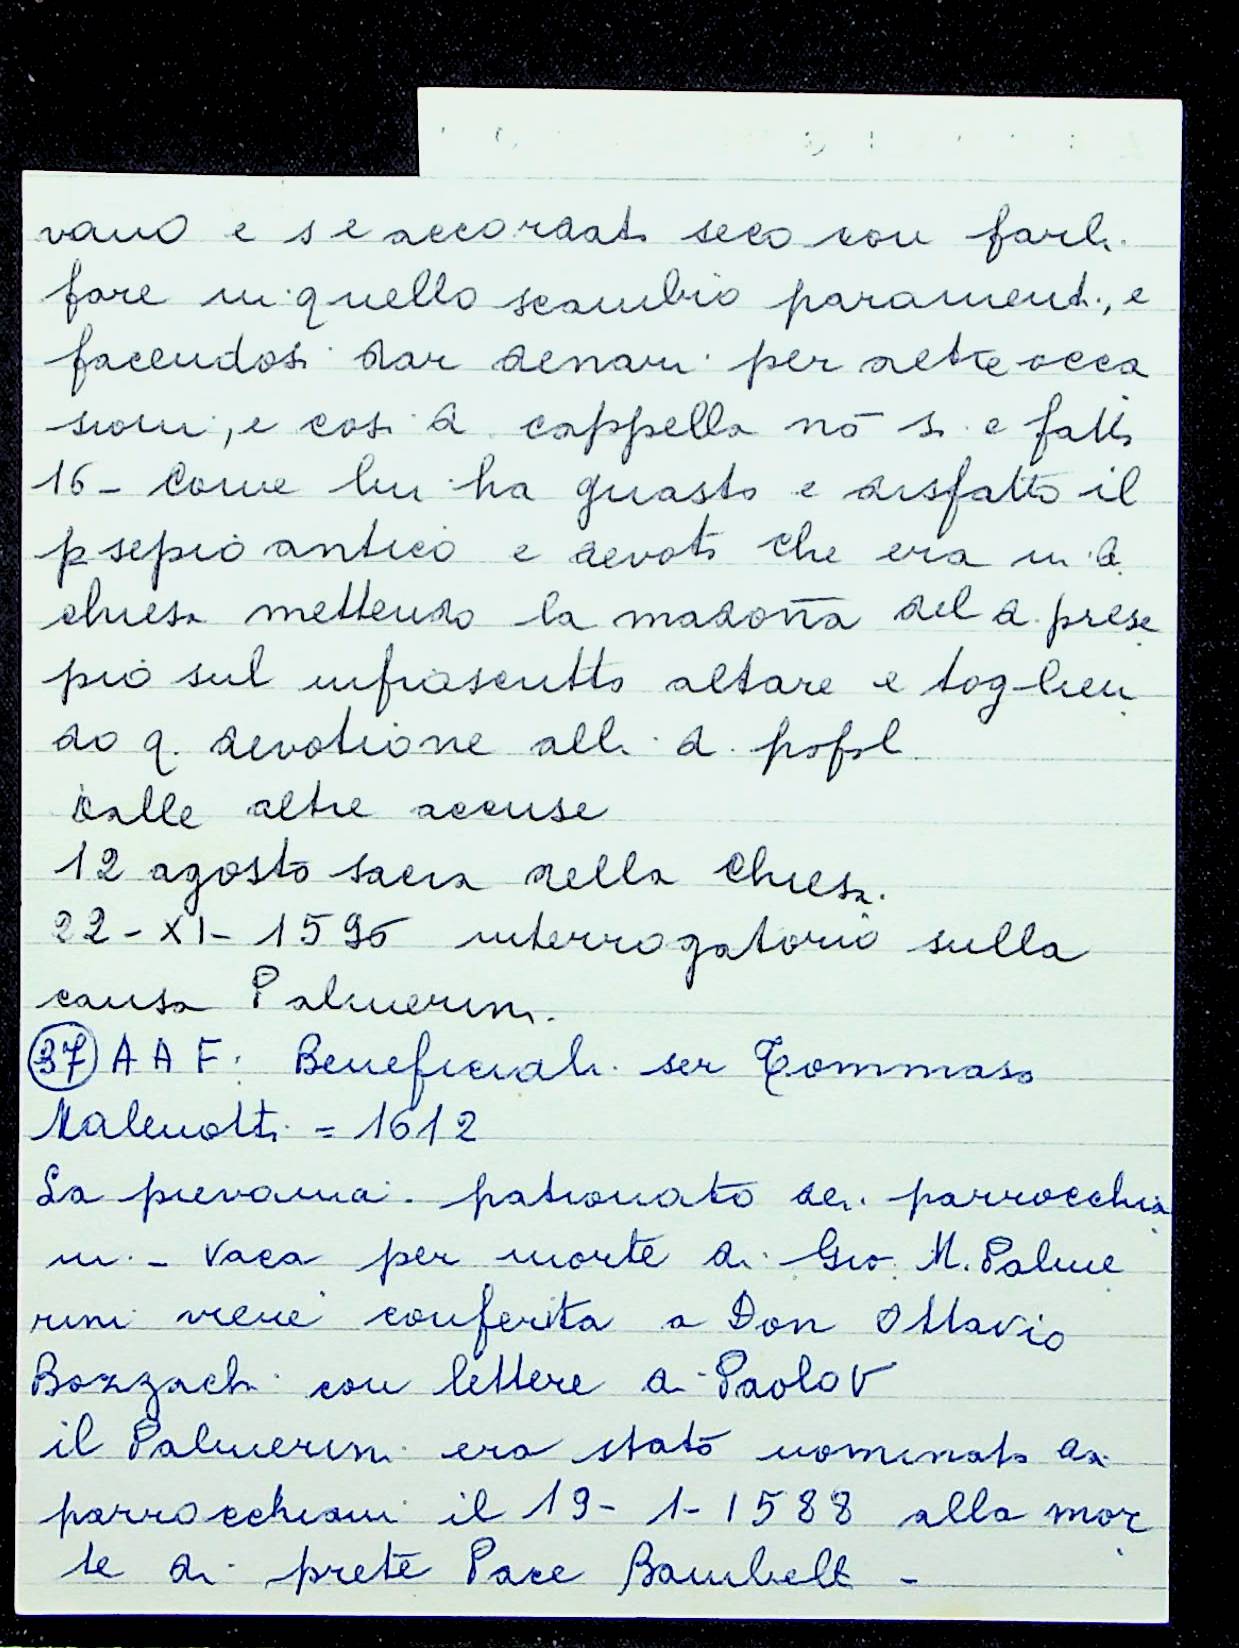 vano e s'e accordato seco con farli
fare in quello scambio paramenti, e
facendosi dar denari per altre occa
sioni, e cosi d. cappella nō si e fatta
16- Come lui ha guasto e disfatto il
psepio antico e devoto che era in d.
chiesa mettendo la madoña del d. prese
pio sul infrascritto altare e toglien
do q. devotione alli d. popol
Dalle altre accuse
12 agosto sacra della Chiesa.
22-XI-1596 interrogatorio sulla
causa Palmerini.
37 A A F. Beneficiali ser Tommaso
Malenotti = 1612
La pievania. patronato dei parrocchia
ni - Vaca per morte di Gio. M. Palme
rini viene conferita a Don Ottavio
Bozzachi con lettere di Paolo V
il Palmerini era stato nominato dai
parrocchiani il 19-1-1588 alla mor
te di prete Pace Bambelli -